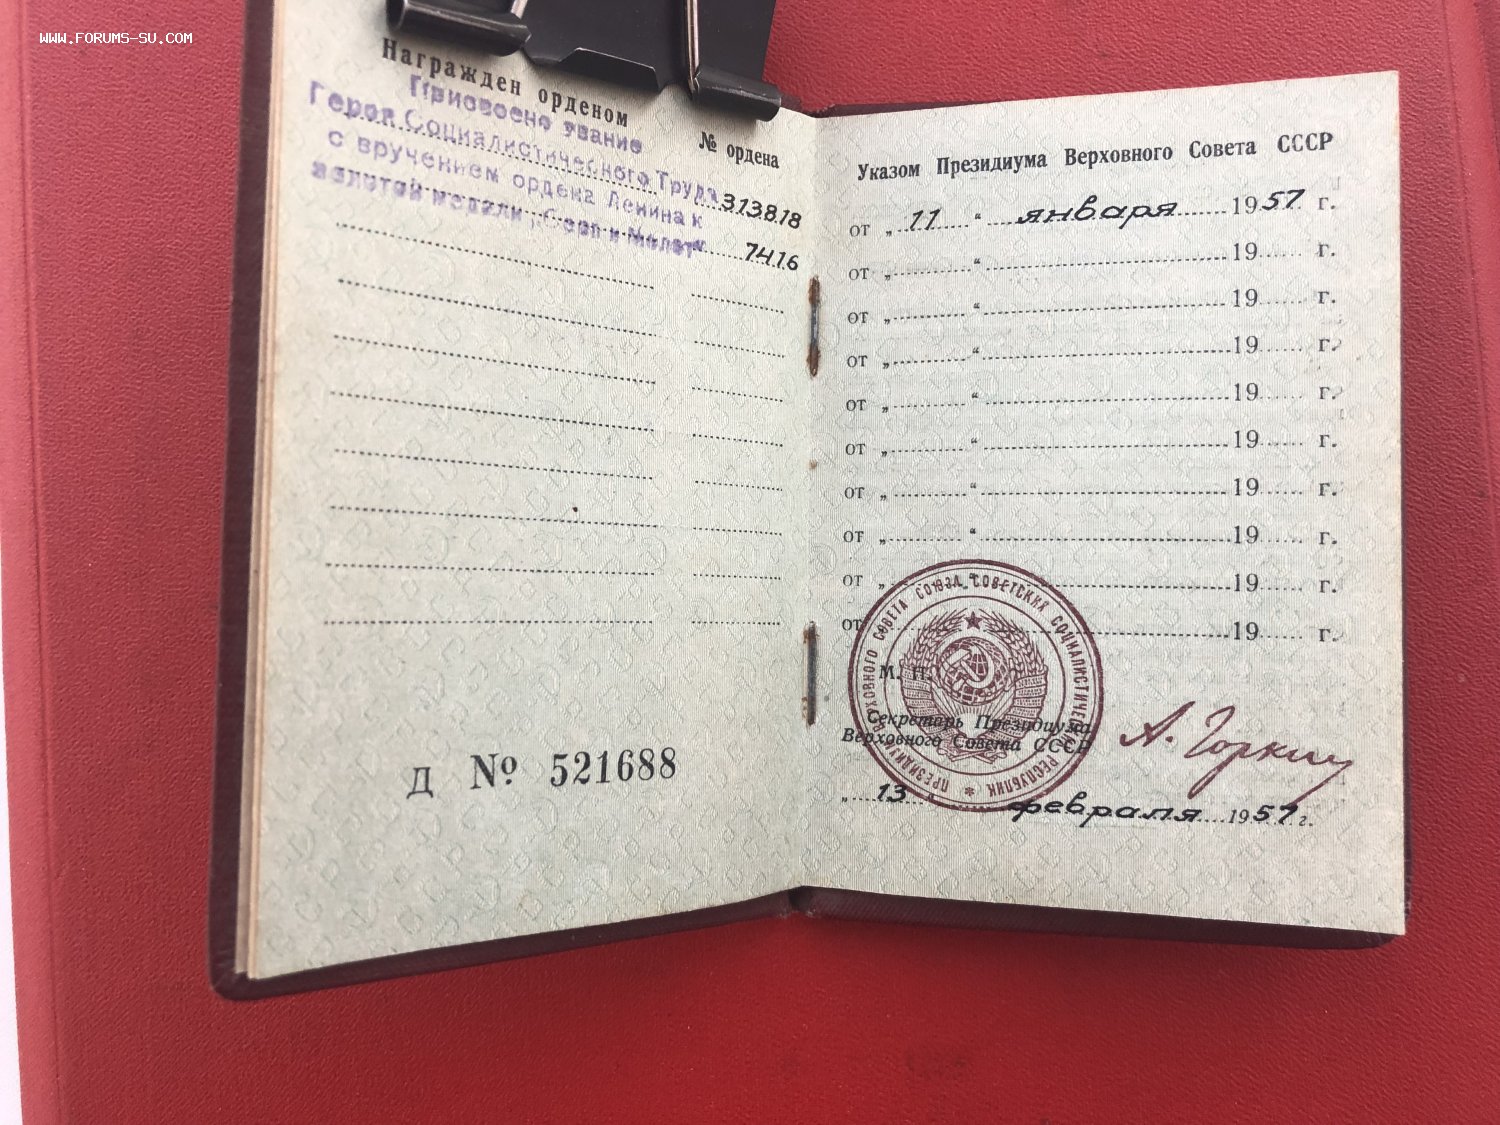 WWW.FORUMS-SU.COM
Награжден орденом
№ ордена
Присвоено звание
Героя Социалистического Труда
с вручением ордена Ленина и
золотой медали „Серп и Молот“
313818
7416
Д № 521688
Указом Президиума Верховного Совета СССР
от „ 11 “ января 1957 г.
от „ “ 19 г.
от „ “ 19 г.
от „ “ 19 г.
от „ “ 19 г.
от „ “ 19 г.
от „ “ 19 г.
от „ “ 19 г.
от „ “ 19 г.
от 19 г.
ПРЕЗИДИУМ ВЕРХОВНОГО СОВЕТА СОЮЗА СОВЕТСКИХ СОЦИАЛИСТИЧЕСКИХ РЕСПУБЛИК
М. П.
Секретарь Президиума
Верховного Совета СССР
А. Горкин
„ 13 “ февраля 1957 г.